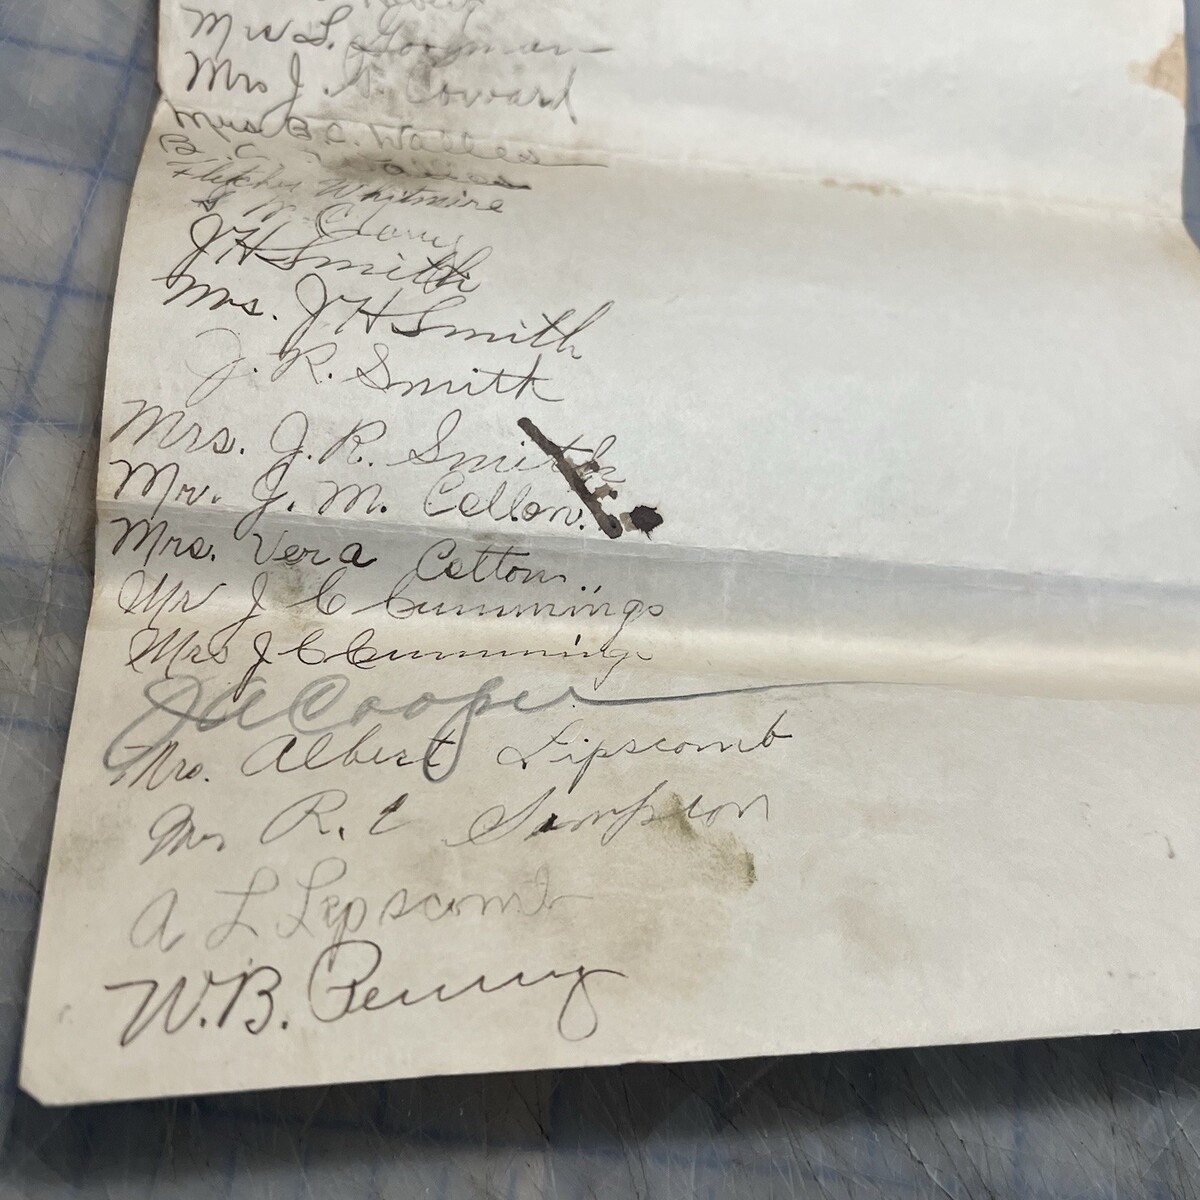 Mrs L.
Mrs J. G. Coward
Mrs B C. Wallas
B. C.
Fletcher Whitmire
J H Smith
Mrs. J H Smith
J. R. Smith
Mrs. J. R. Smith
Mr. J. M. Cellon.
Mrs. Vera Cottom..
Mr J C Cummings
Mrs J C Cummings
J A Cooper
Mrs. Albert Lipscomb
Mrs R. C Simpson
A L Lipscomb
W. B. Penny